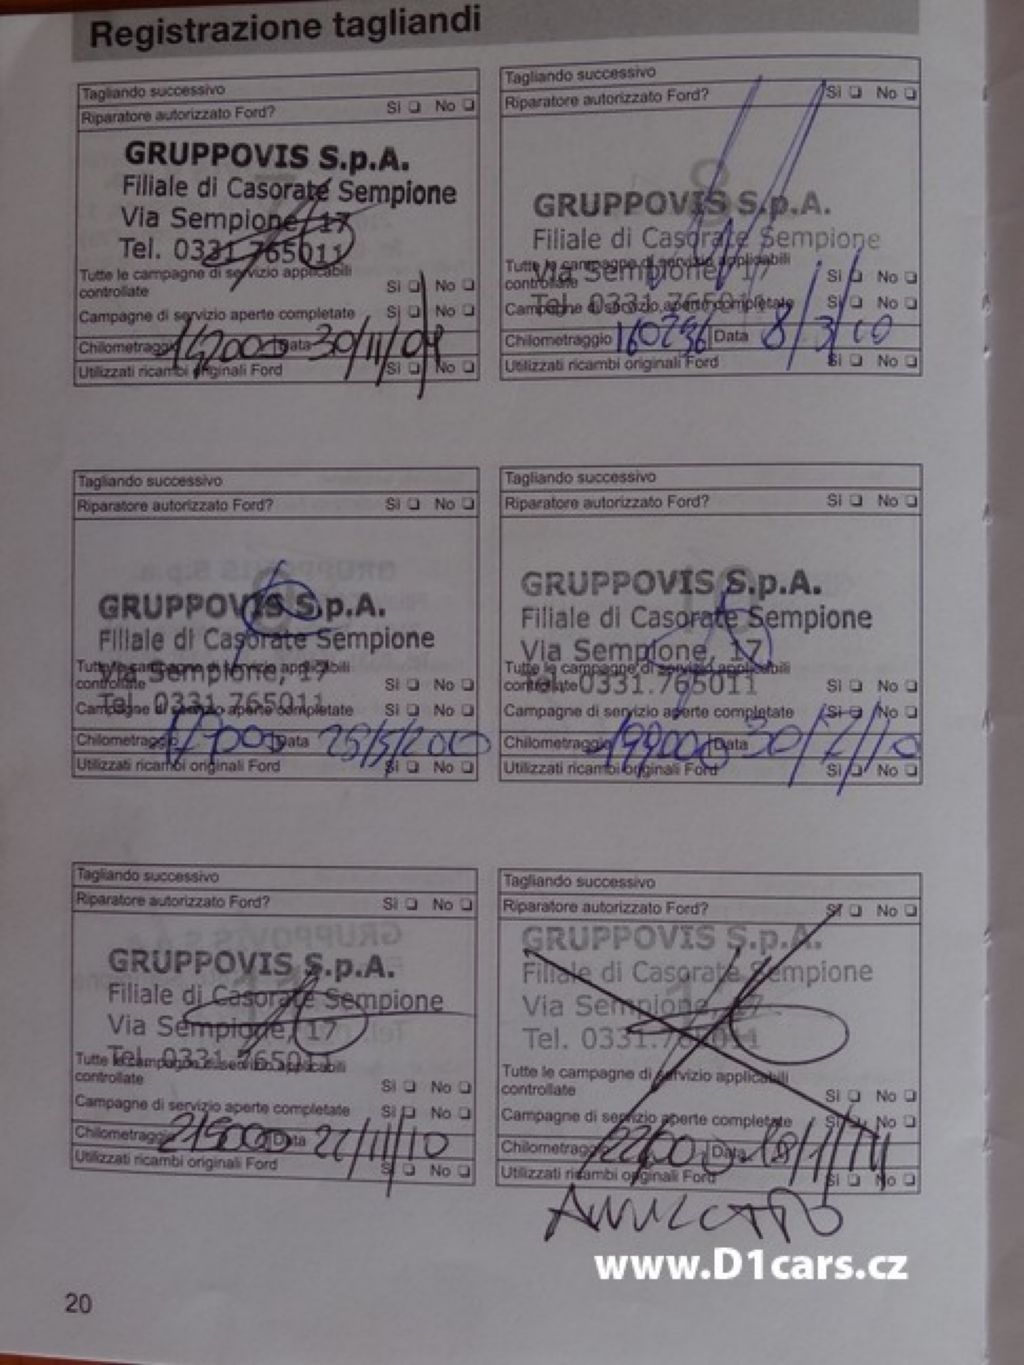 Registrazione tagliandi
Tagliando successivo
Riparatore autorizzato Ford? Sì ❏ No ❏
GRUPPOVIS S.p.A.
Filiale di Casorate Sempione
Via Sempione, 17
Tel. 0331.765011
Tutte le campagne di servizio applicabili
controllate Sì ❏ No ❏
Campagne di servizio aperte completate Sì ❏ No ❏
Chilometraggio Data 30/11/09
Utilizzati ricambi originali Ford Sì ❏ No ❏
Tagliando successivo
Riparatore autorizzato Ford? Sì ❏ No ❏
8
GRUPPOVIS S.p.A.
Filiale di Casorate Sempione
Via Sempione, 17
Tel. 0331.765011
Tutte le campagne di servizio applicabili
controllate Sì ❏ No ❏
Campagne di servizio aperte completate Sì ❏ No ❏
Chilometraggio 160236 Data 8/3/10
Utilizzati ricambi originali Ford Sì ❏ No ❏
Tagliando successivo
Riparatore autorizzato Ford? Sì ❏ No ❏
GRUPPOVIS S.p.A.
Filiale di Casorate Sempione
Via Sempione, 17
Tel. 0331.765011
Tutte le campagne di servizio applicabili
controllate Sì ❏ No ❏
Campagne di servizio aperte completate Sì ❏ No ❏
Chilometraggio Data 25/5/2010
Utilizzati ricambi originali Ford Sì ❏ No ❏
Tagliando successivo
Riparatore autorizzato Ford? Sì ❏ No ❏
10
GRUPPOVIS S.p.A.
Filiale di Casorate Sempione
Via Sempione, 17
Tel. 0331.765011
Tutte le campagne di servizio applicabili
controllate Sì ❏ No ❏
Campagne di servizio aperte completate Sì ❏ No ❏
Chilometraggio 199000 Data 30/7/10
Utilizzati ricambi originali Ford Sì ❏ No ❏
Tagliando successivo
Riparatore autorizzato Ford? Sì ❏ No ❏
GRUPPOVIS S.p.A.
Filiale di Casorate Sempione
Via Sempione, 17
Tel. 0331.765011
Tutte le campagne di servizio applicabili
controllate Sì ❏ No ❏
Campagne di servizio aperte completate Sì ❏ No ❏
Chilometraggio 215000 Data 22/11/10
Utilizzati ricambi originali Ford Sì ❏ No ❏
Tagliando successivo
Riparatore autorizzato Ford? Sì ❏ No ❏
GRUPPOVIS S.p.A.
Filiale di Casorate Sempione
Via Sempione, 17
Tel. 0331.765011
Tutte le campagne di servizio applicabili
controllate Sì ❏ No ❏
Campagne di servizio aperte completate Sì ❏ No ❏
Chilometraggio Data 18/1/11
Utilizzati ricambi originali Ford Sì ❏ No ❏
ANNULLATO
www.D1cars.cz
20